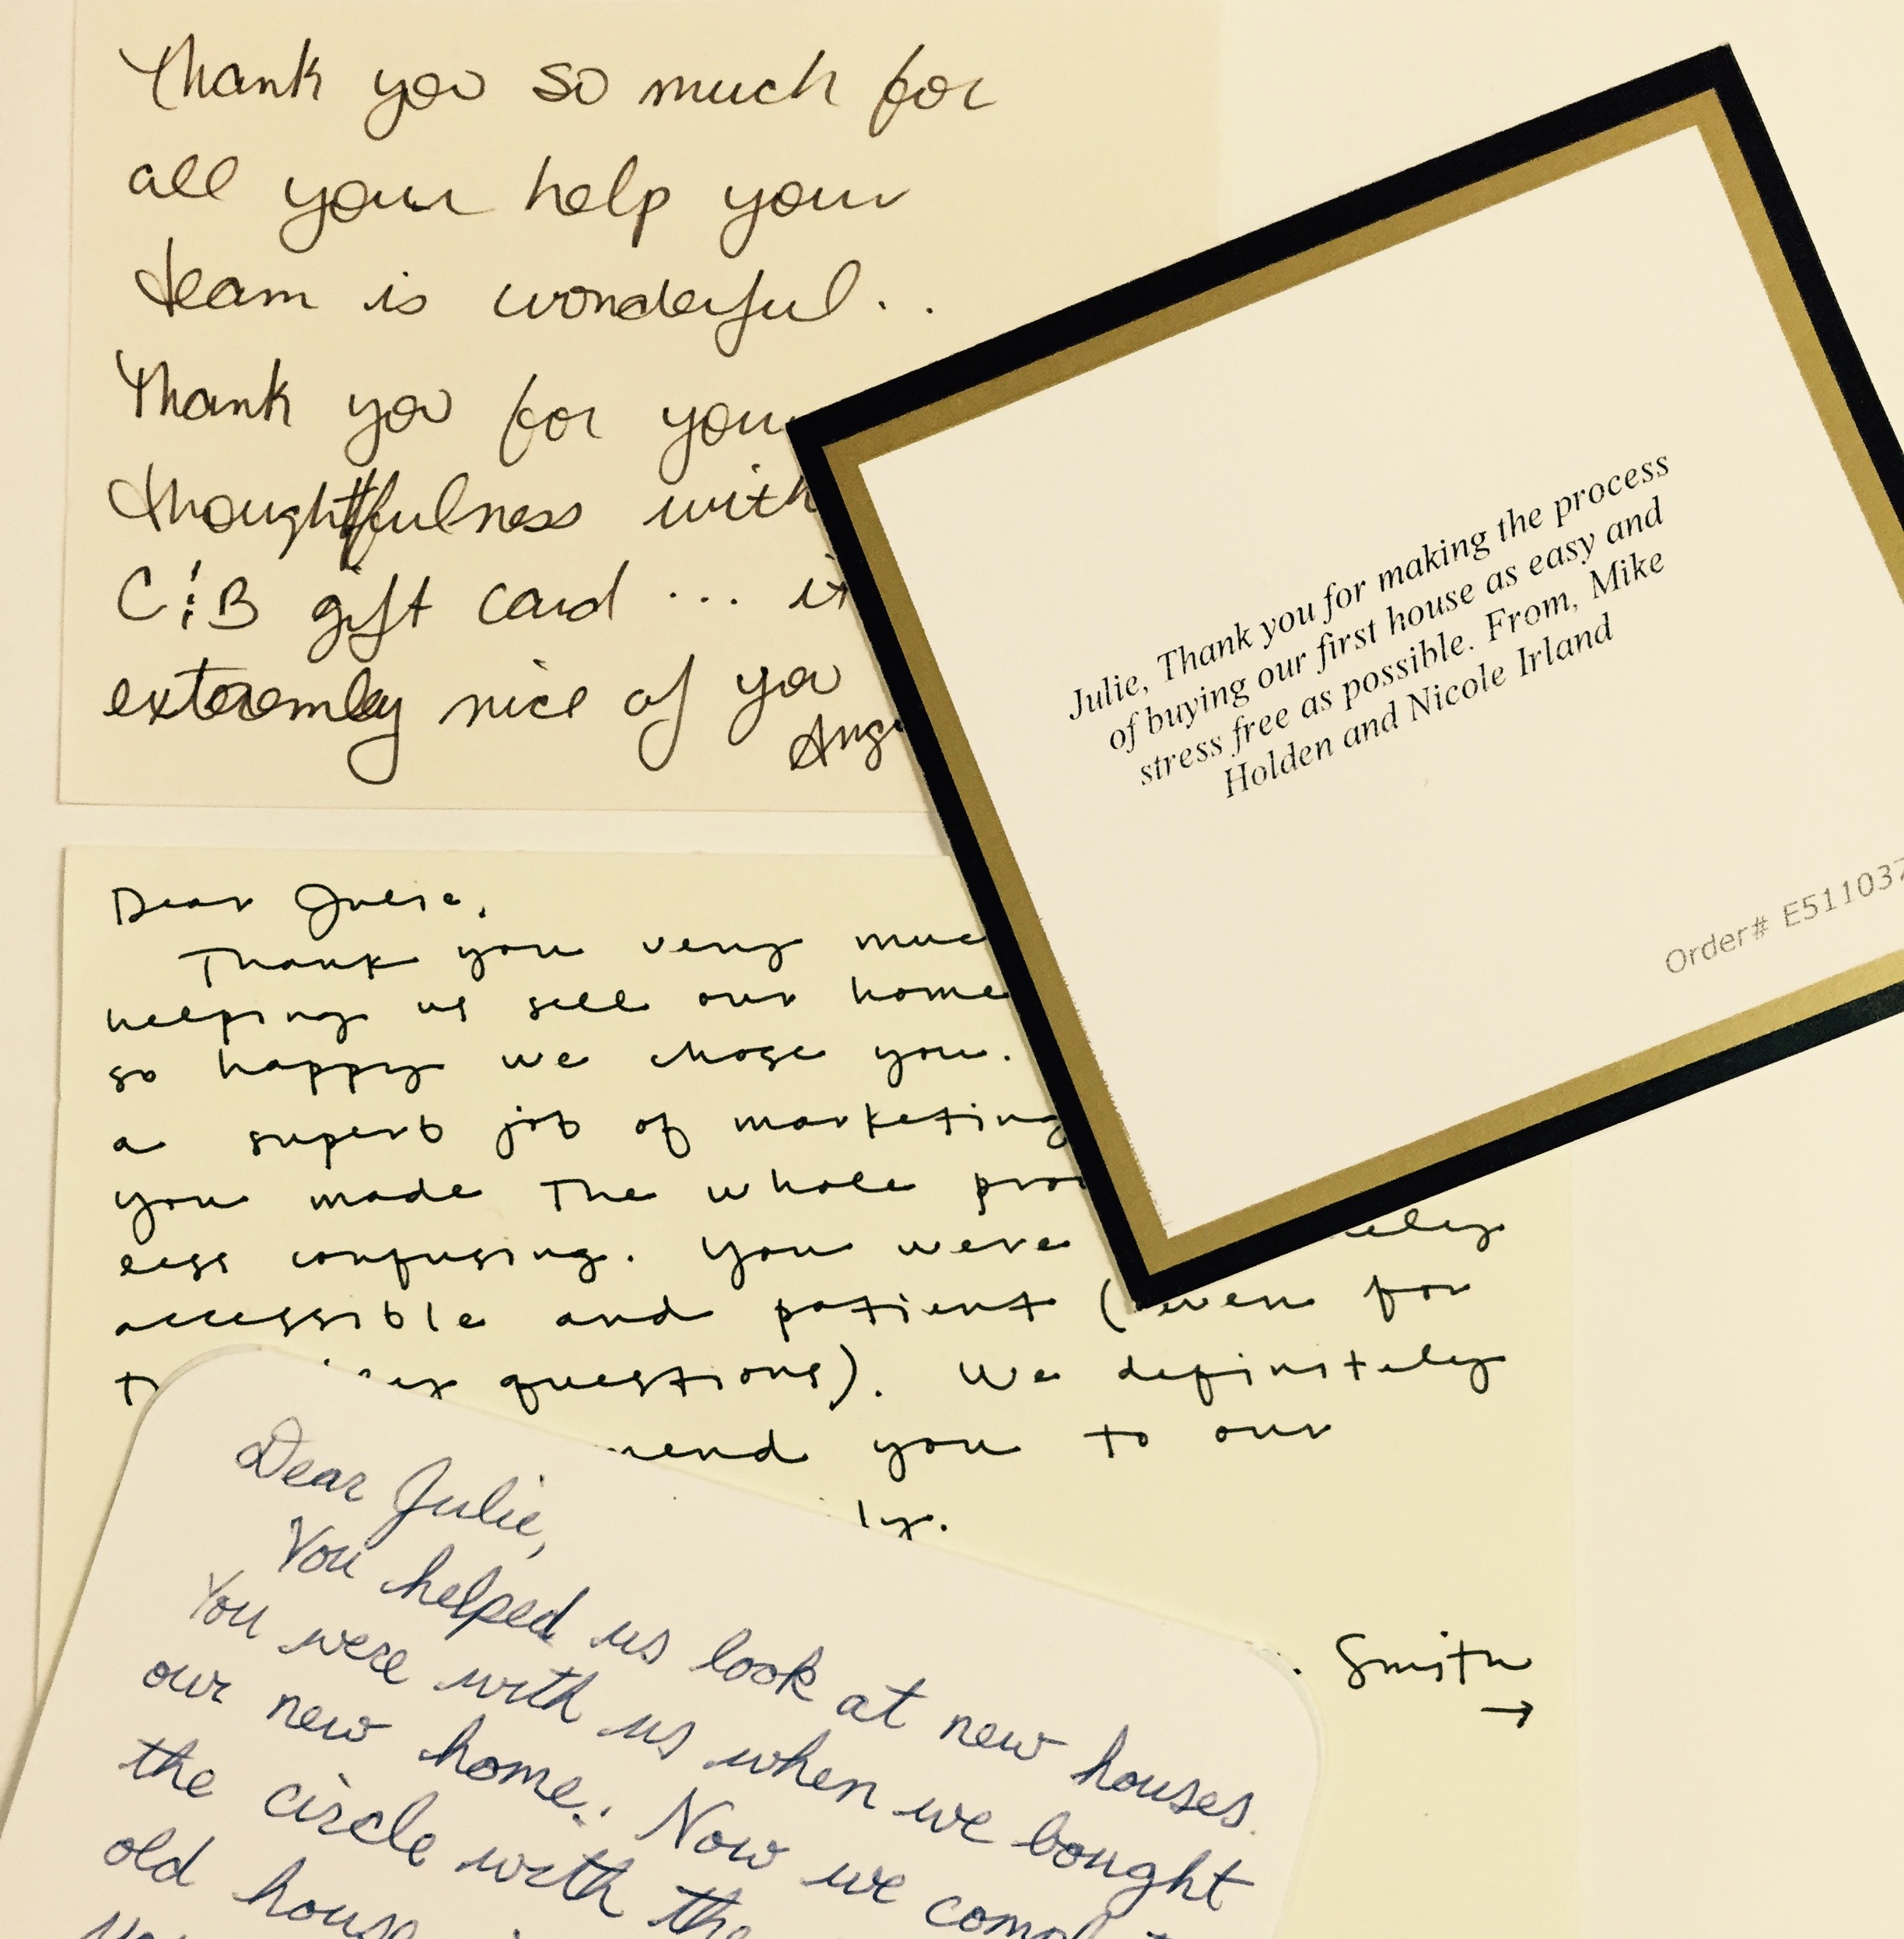 Thank you so much for
all your help your
team is wonderful..
Thank you for your
thoughtfulness with
C & B gift card ... it
extremly nice of you
Julie, Thank you for making the process
of buying our first house as easy and
stress free as possible. From, Mike
Holden and Nicole Irland
Order# E511037
Dear Julie,
Thank you very
helping us sell our home
so happy we chose you.
a superb job of marketing
you made the whole
less confusing. You were
accessible and patient (even for
questions). We definitely
you to our
Smith
→
Dear Julie,
You helped us look at new houses.
You were with us when we bought
our new home. Now we
the circle with the
old